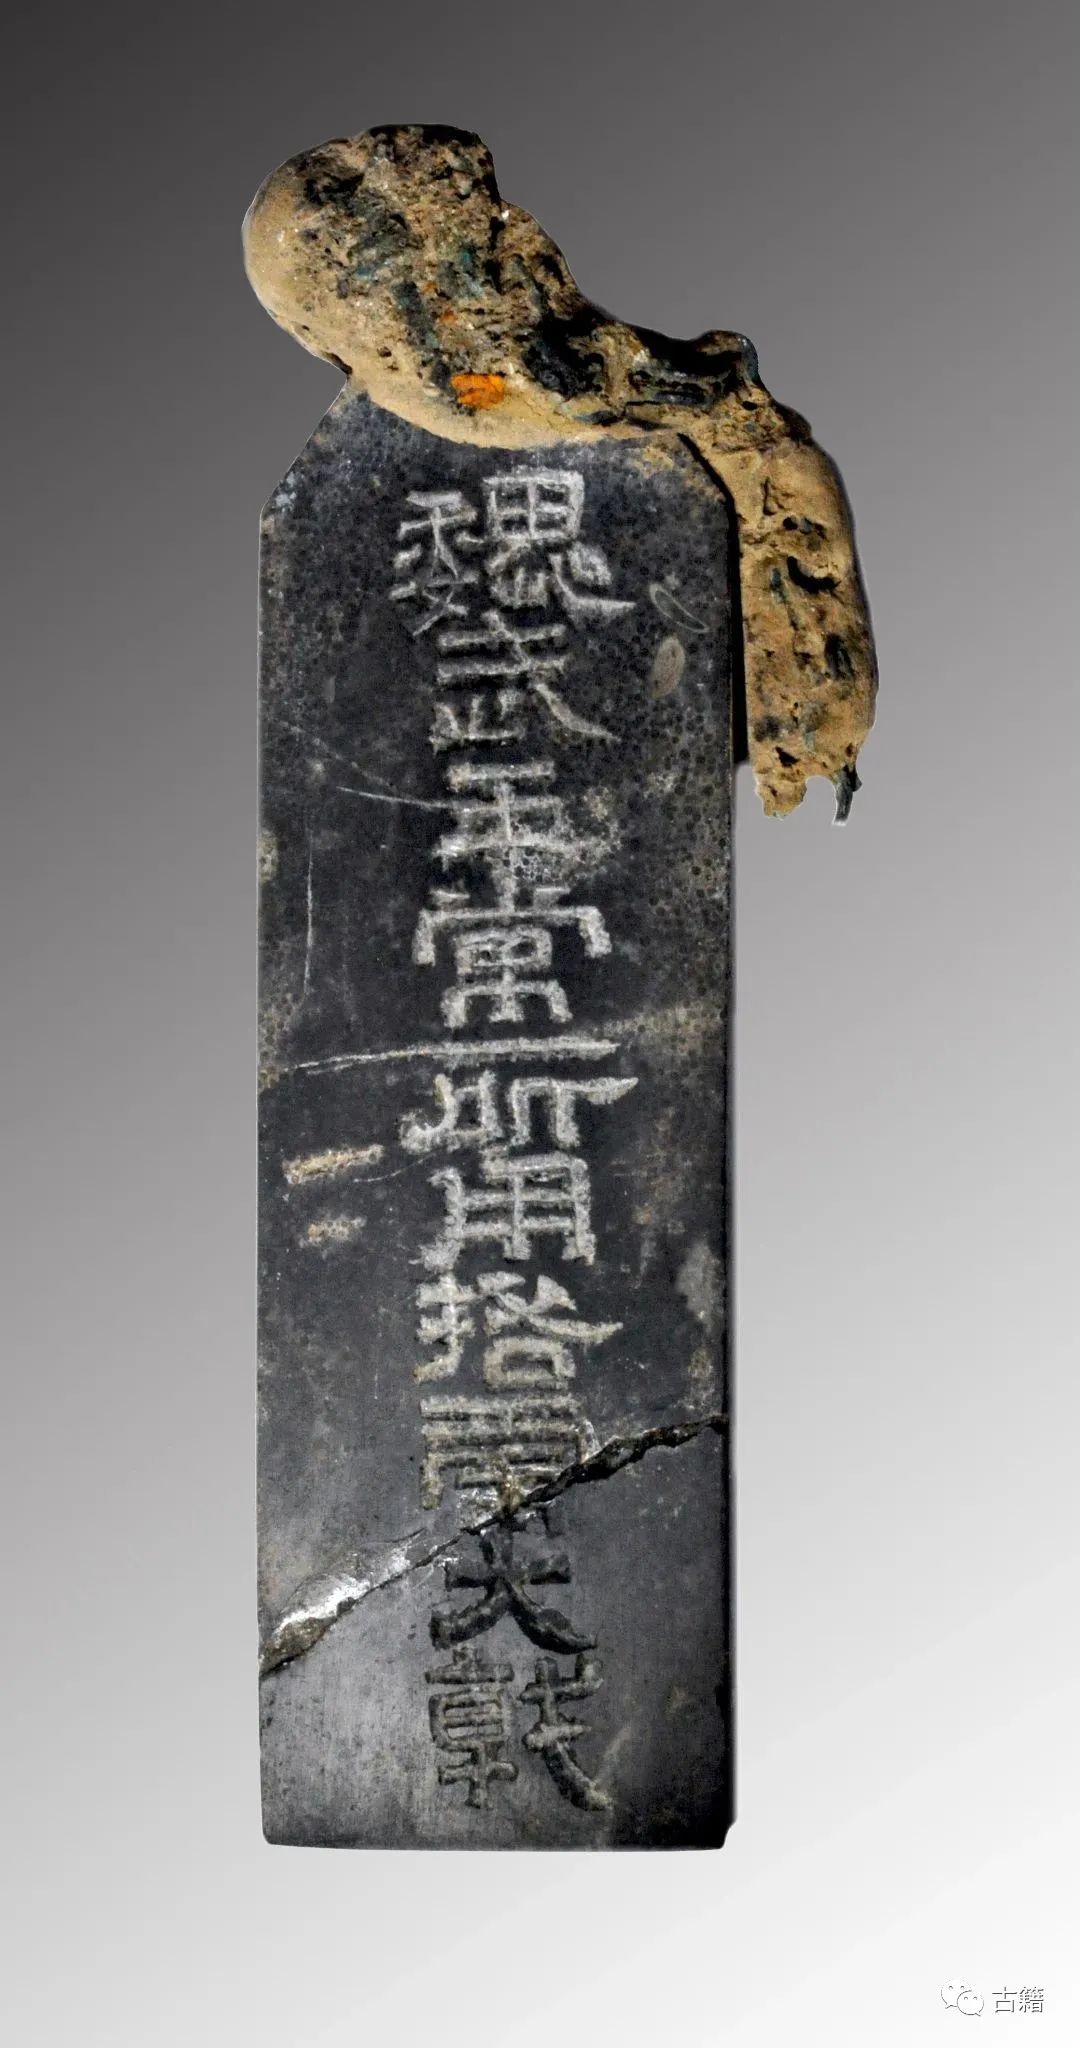 魏武王常所用挌虎大戟
古籍